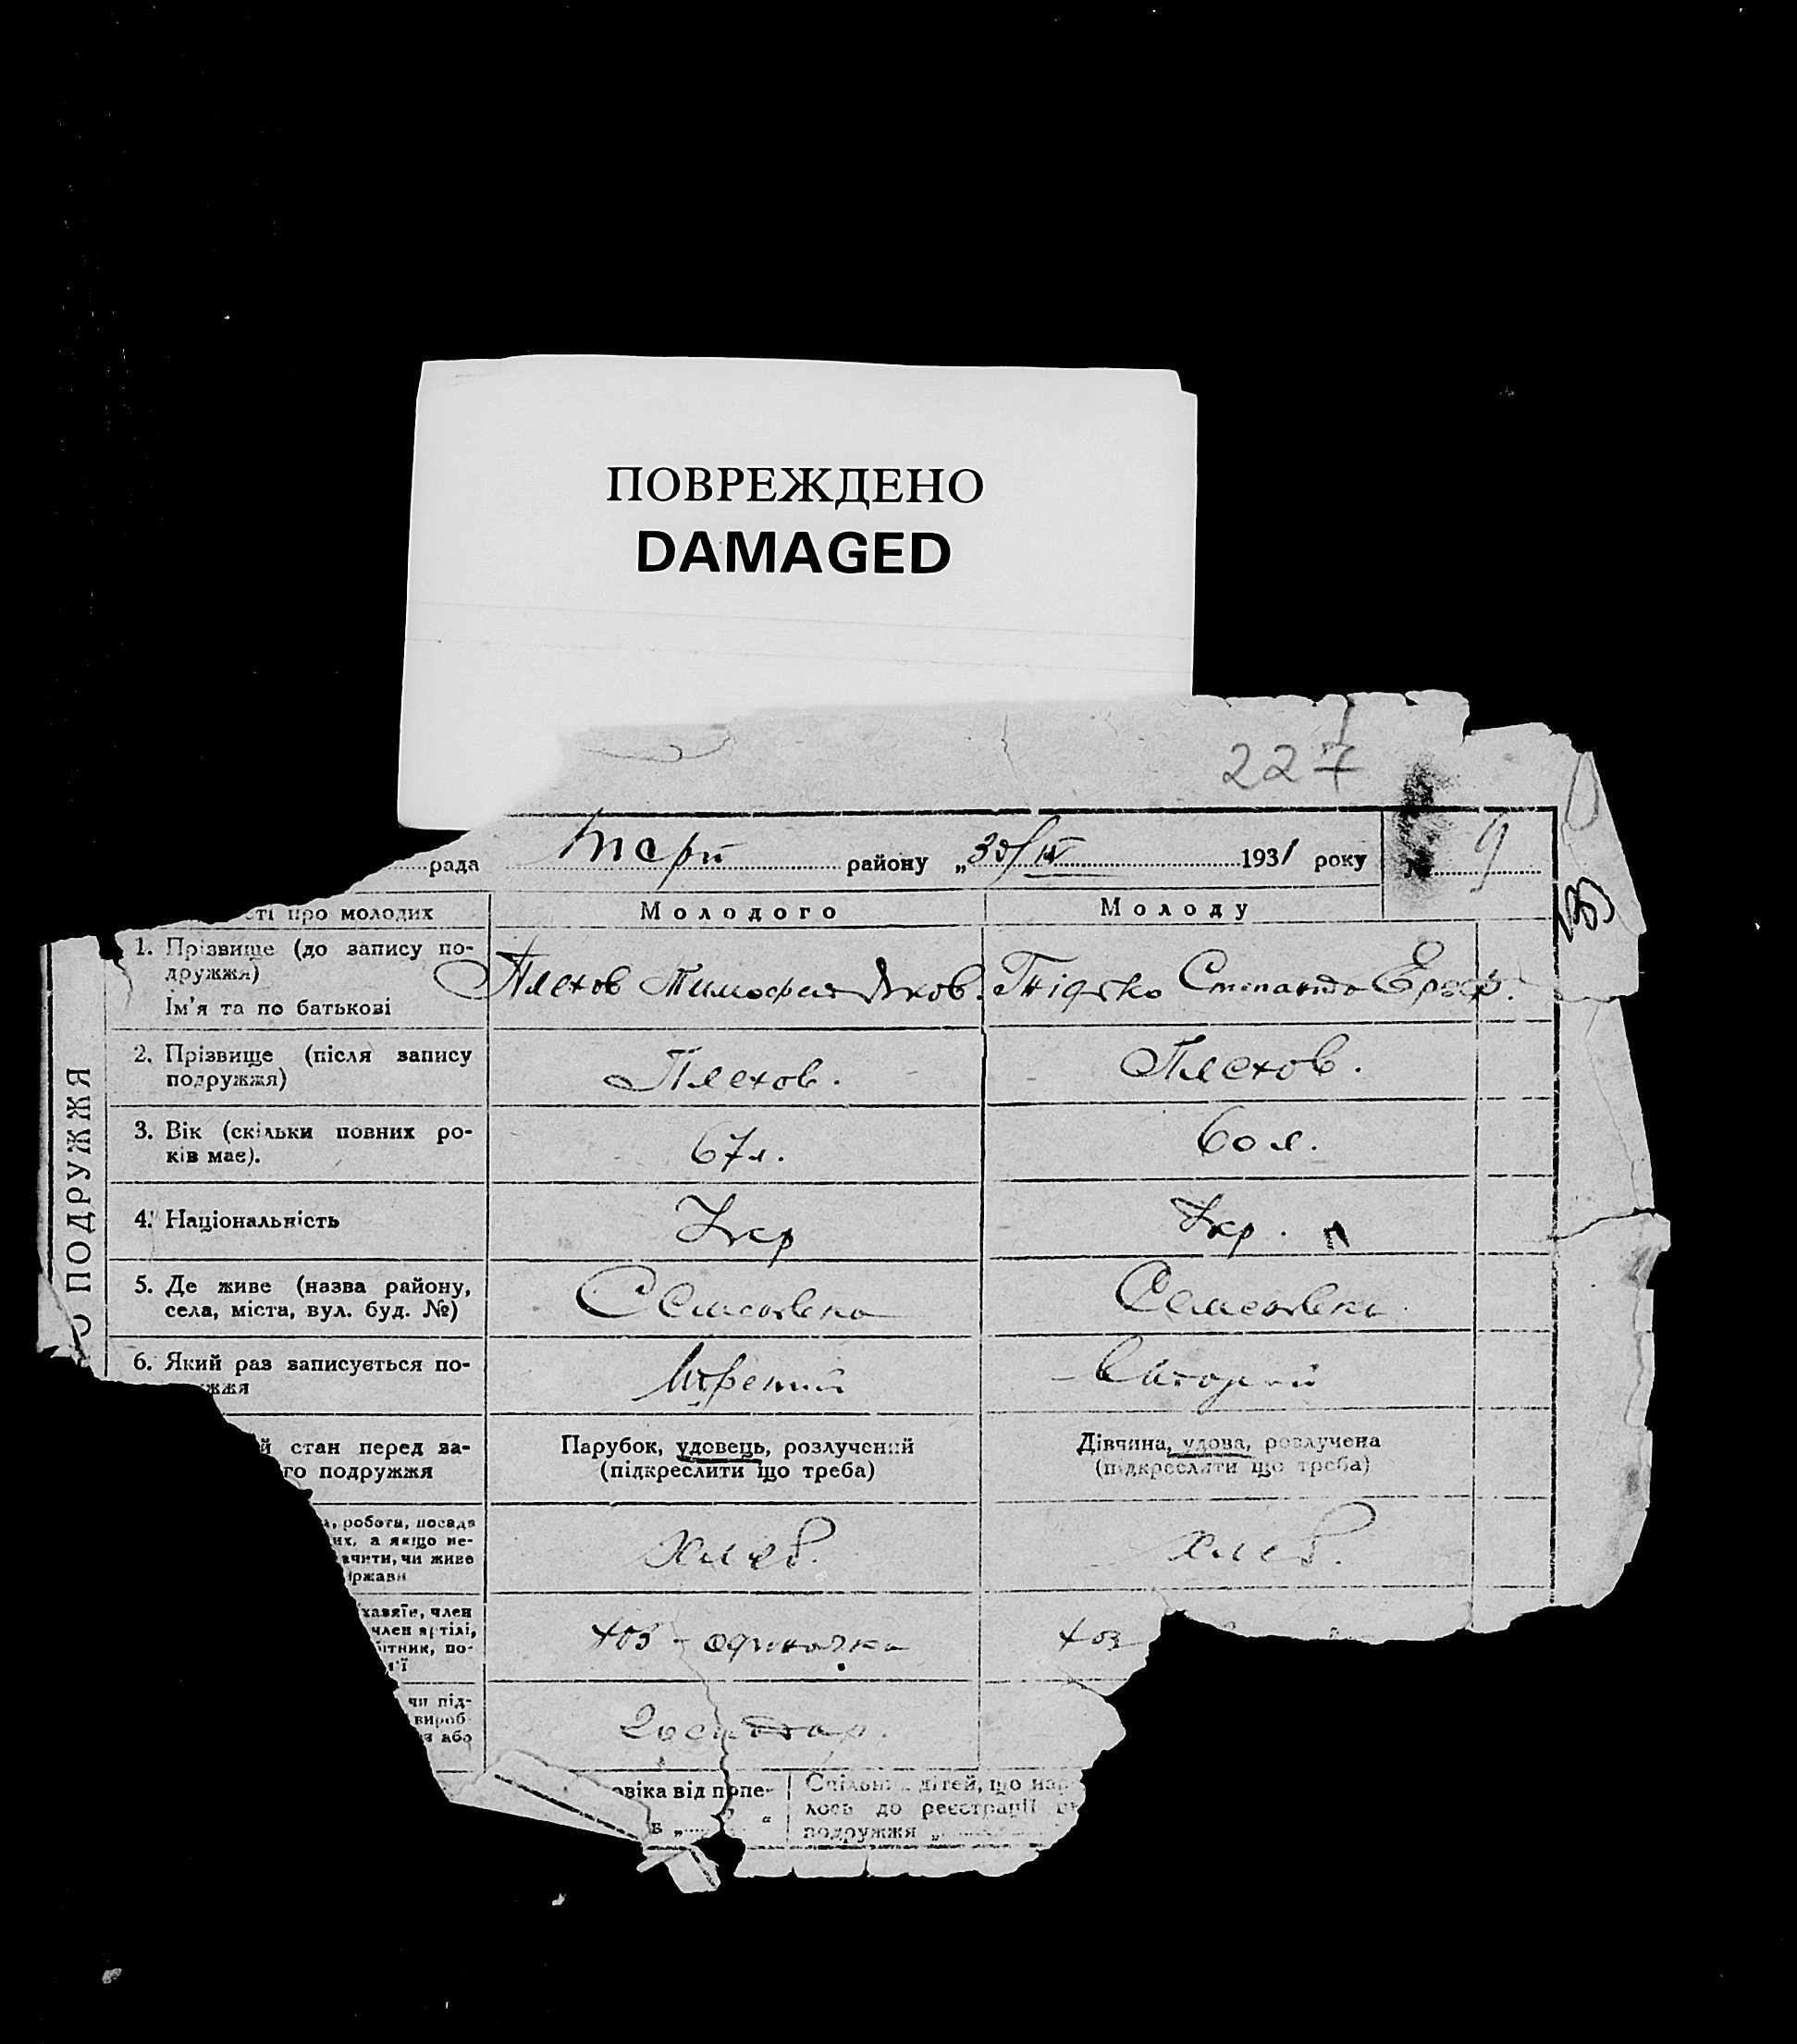 ПОВРЕЖДЕНО
DAMAGED
227
рада району „30/IV 1931 року № 9
сті про молодих Молодого Молоду
1. Прізвище (до запису по-
дружжя)
Ім'я та по батькові
Плехов Тимофей Яков. Гнідко Степанида Ероф.
2. Прізвище (після запису
подружжя)
Плехов. Плехов.
3. Вік (скільки повних ро-
ків має).
67 л. 60 л.
4. Національність
Укр Укр.
5. Де живе (назва району,
села, міста, вул. буд. №)
6. Який раз записується по-
жжя
третий второй
й стан перед за-
го подружжя
Парубок, удовець, розлучений
(підкреслити що треба)
Дівчина, удова, розлучена
(підкреслити що треба)
, робота, посада
их, а якщо не-
ачити, чи живе
ржави
Хлеб. Хлеб.
хазяїн, член
член артілі,
ітник, по-
ї
одиначка
чи під-
вироб-
або
Господар.
овіка від попе-
в „ “
Спільних дітей, що нар
лось до реєстрації
подружжя „
О ПОДРУЖЖЯ